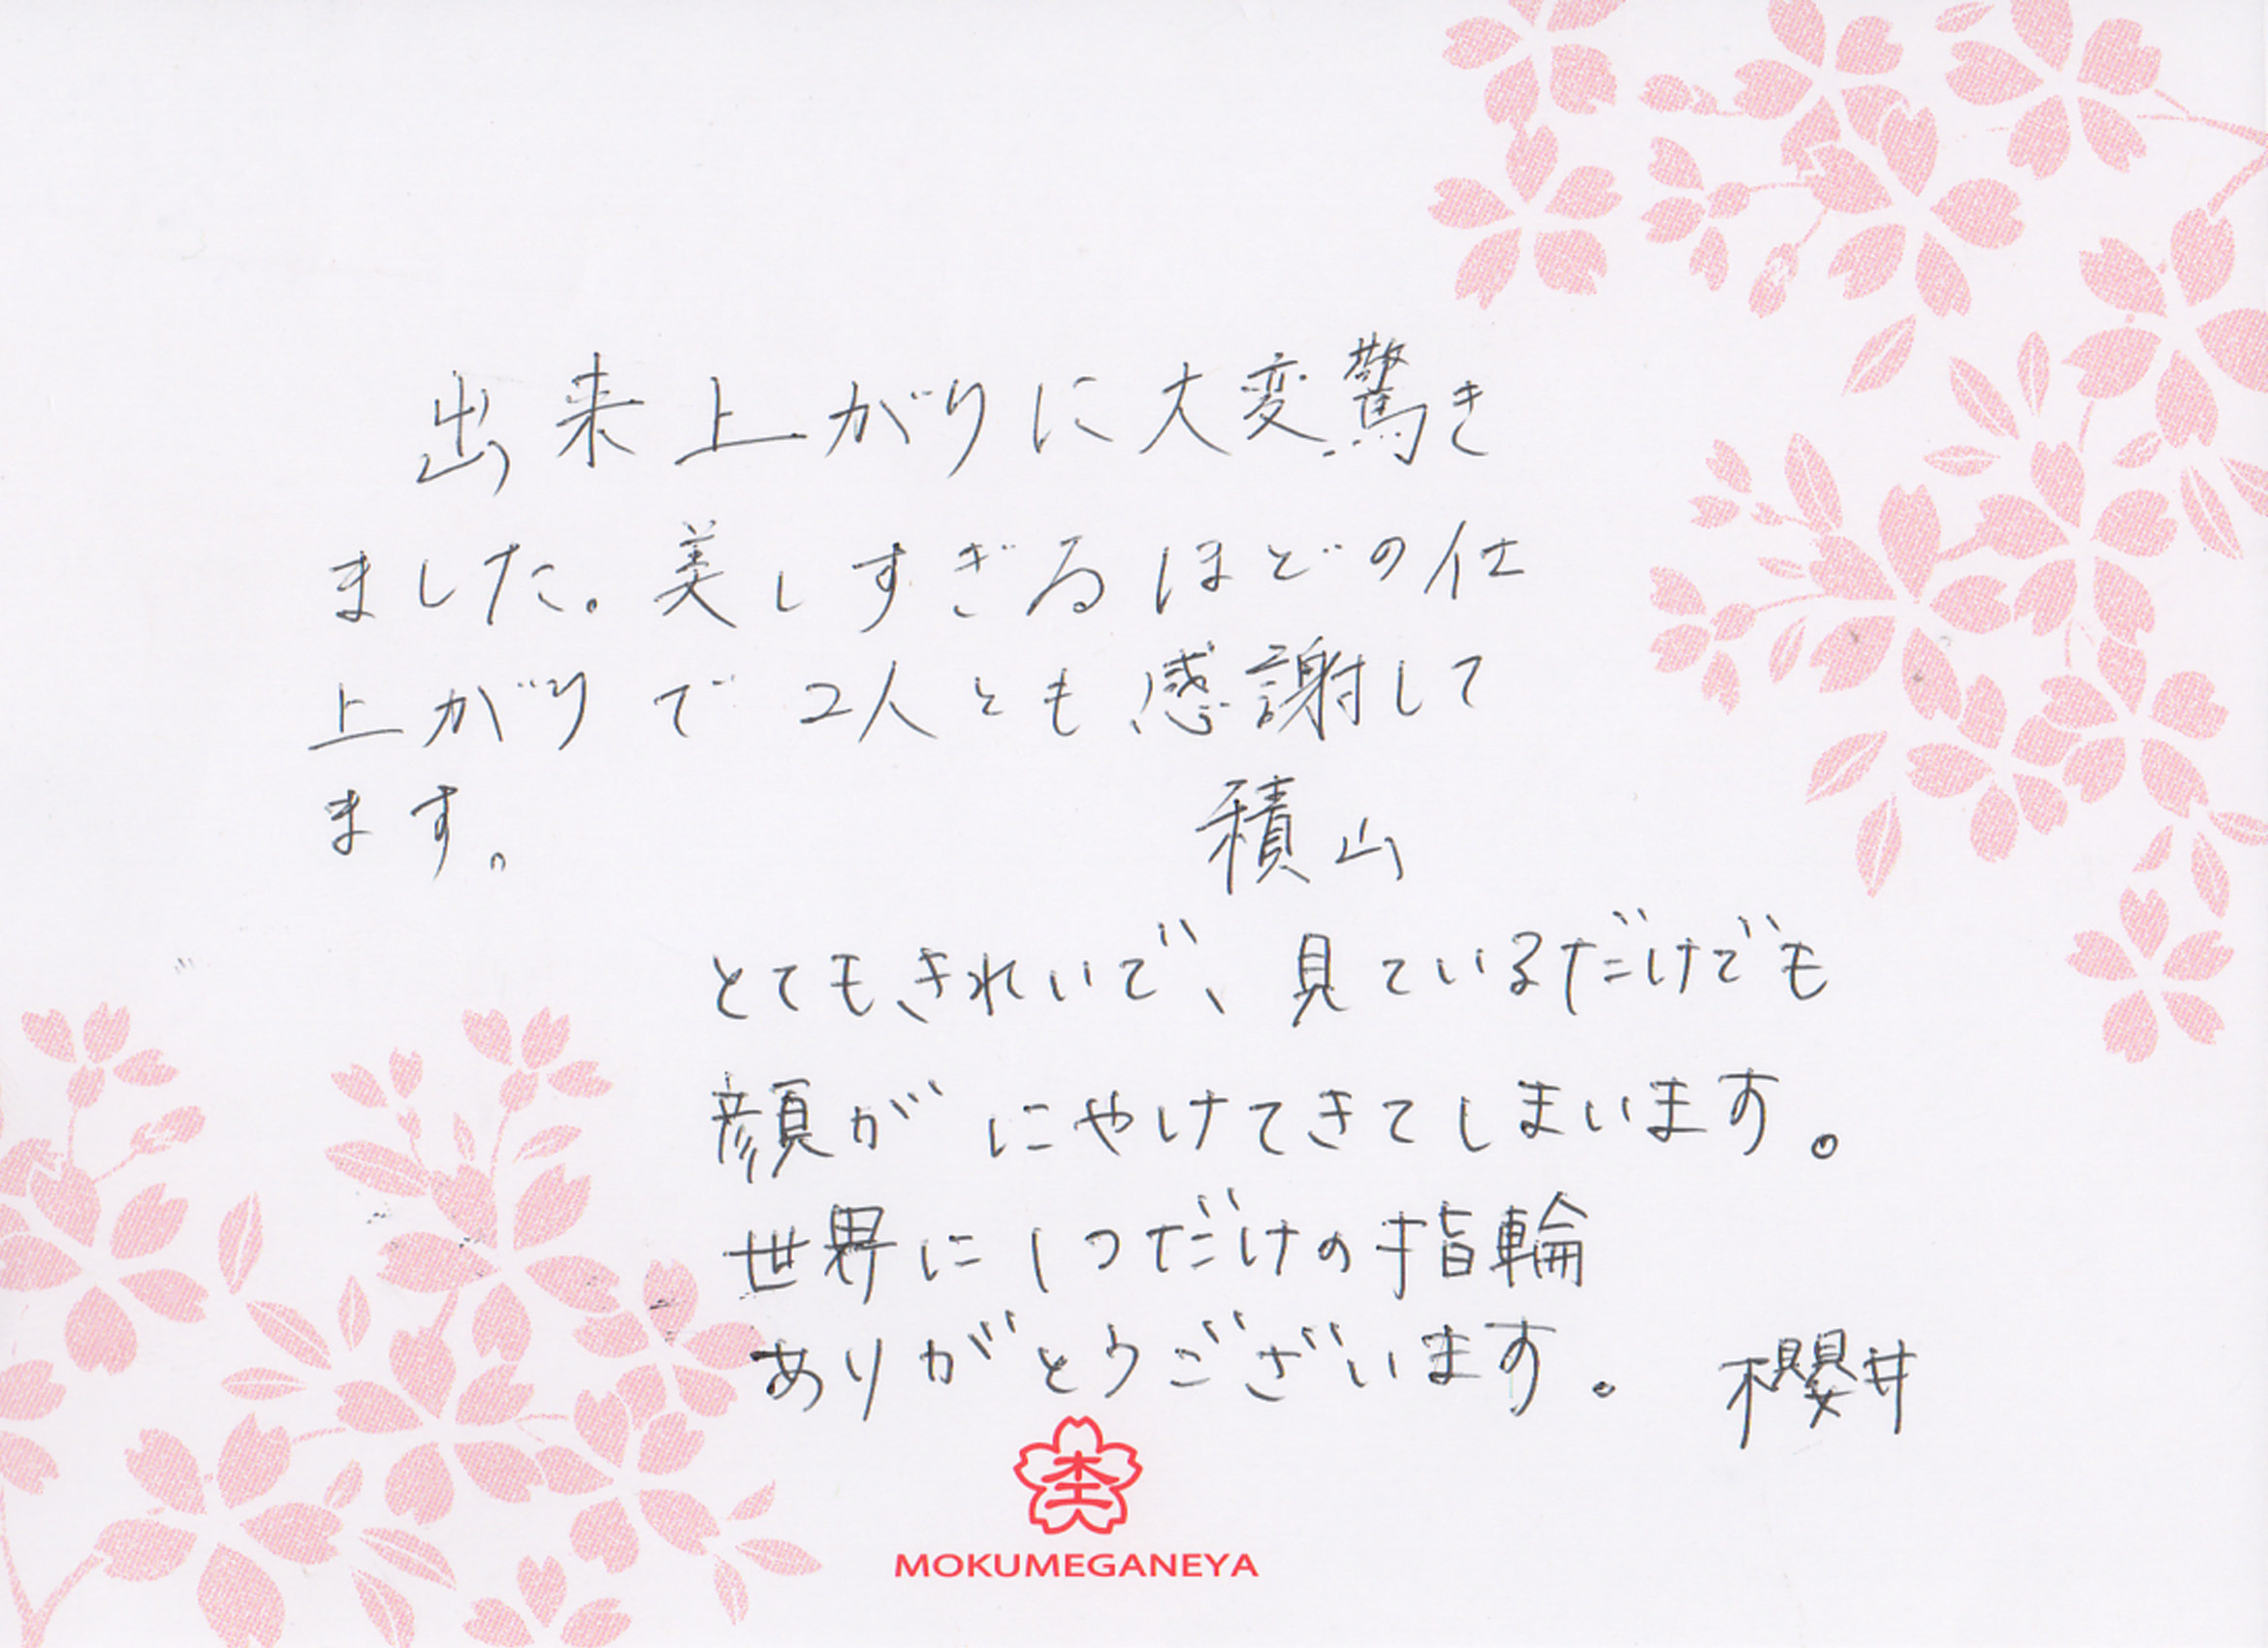 出来上がりに大変驚き
ました。美しすぎるほどの仕
上がりで2人とも感謝して
ます。
積山
とてもきれいで、見ているだけでも
顔がにやけてきてしまいます。
世界に1つだけの指輪
ありがとうございます。 櫻井
杢
MOKUMEGANEYA